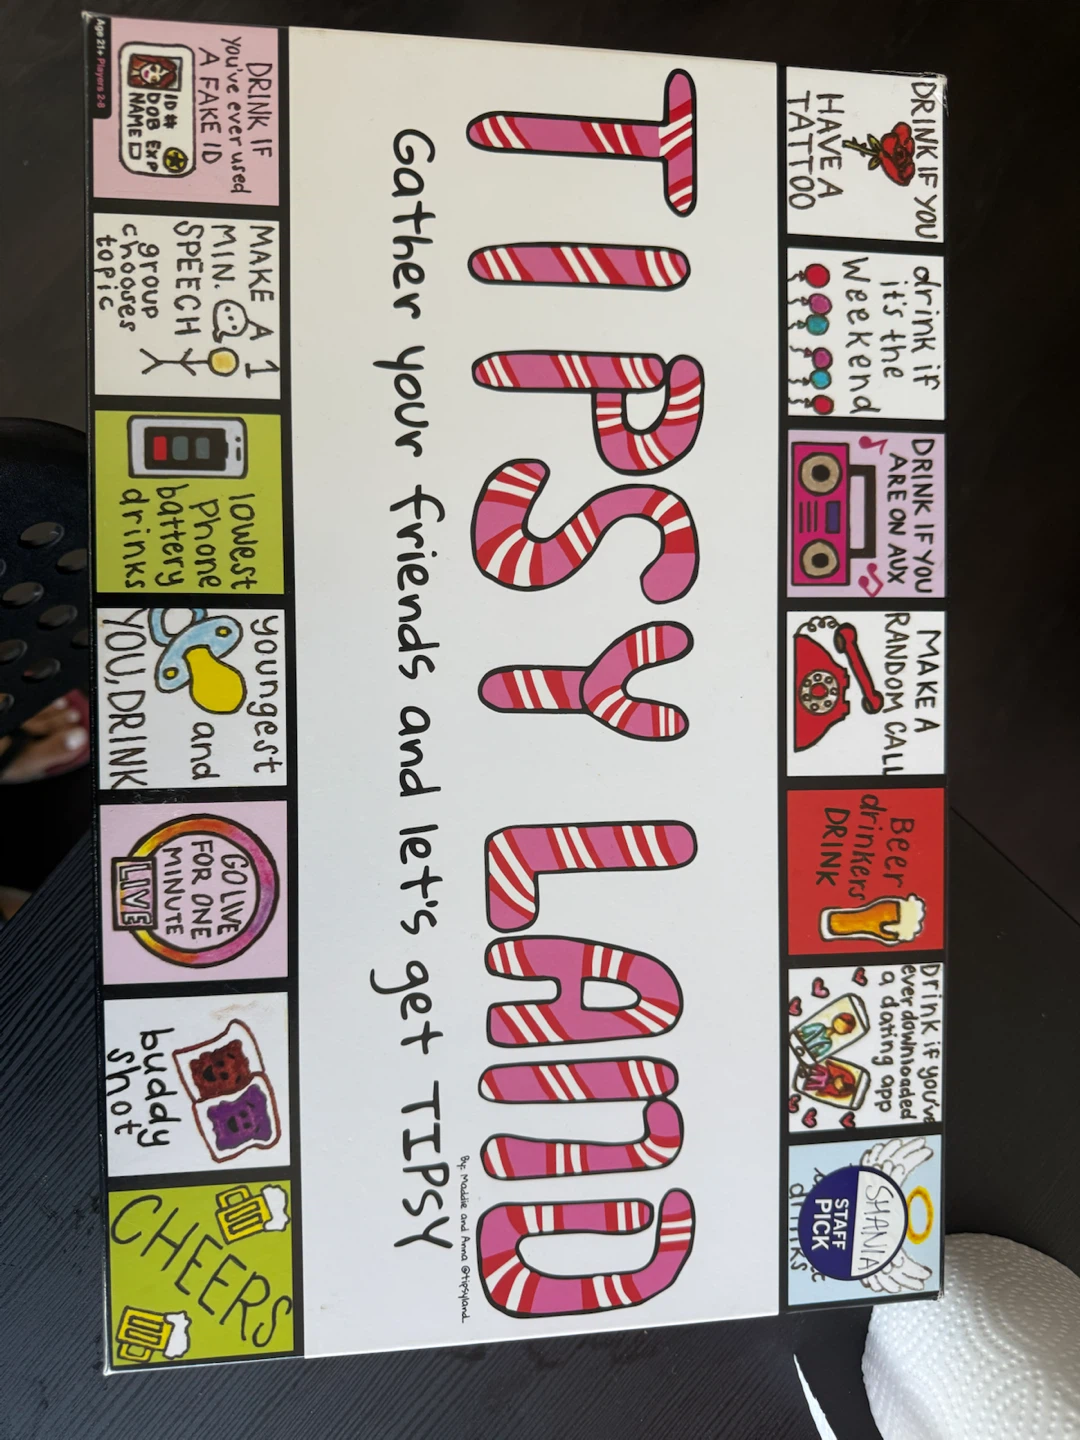 DRINK IF YOU
HAVE A
TATTOO
drink if
it's the
weekend
DRINK IF YOU
ARE ON AUX
MAKE A
RANDOM CALL
Beer
drinkers
DRINK
Drink if you've
ever downloaded
a dating app
SHANIA
STAFF
PICK
drinks
TIPSY LAND
By: Maddie and Anna @tipsyland
Gather your friends and let's get TIPSY
DRINK IF
you've ever used
A FAKE ID
ID#
DOB EXP
NAME
Age 21+ Players 2-8
MAKE A 1
MIN.
SPEECH
group
chooses
topic
lowest
Phone
battery
drinks
youngest
and
YOU, DRINK
GO LIVE
FOR ONE
MINUTE
LIVE
buddy
shot
CHEERS